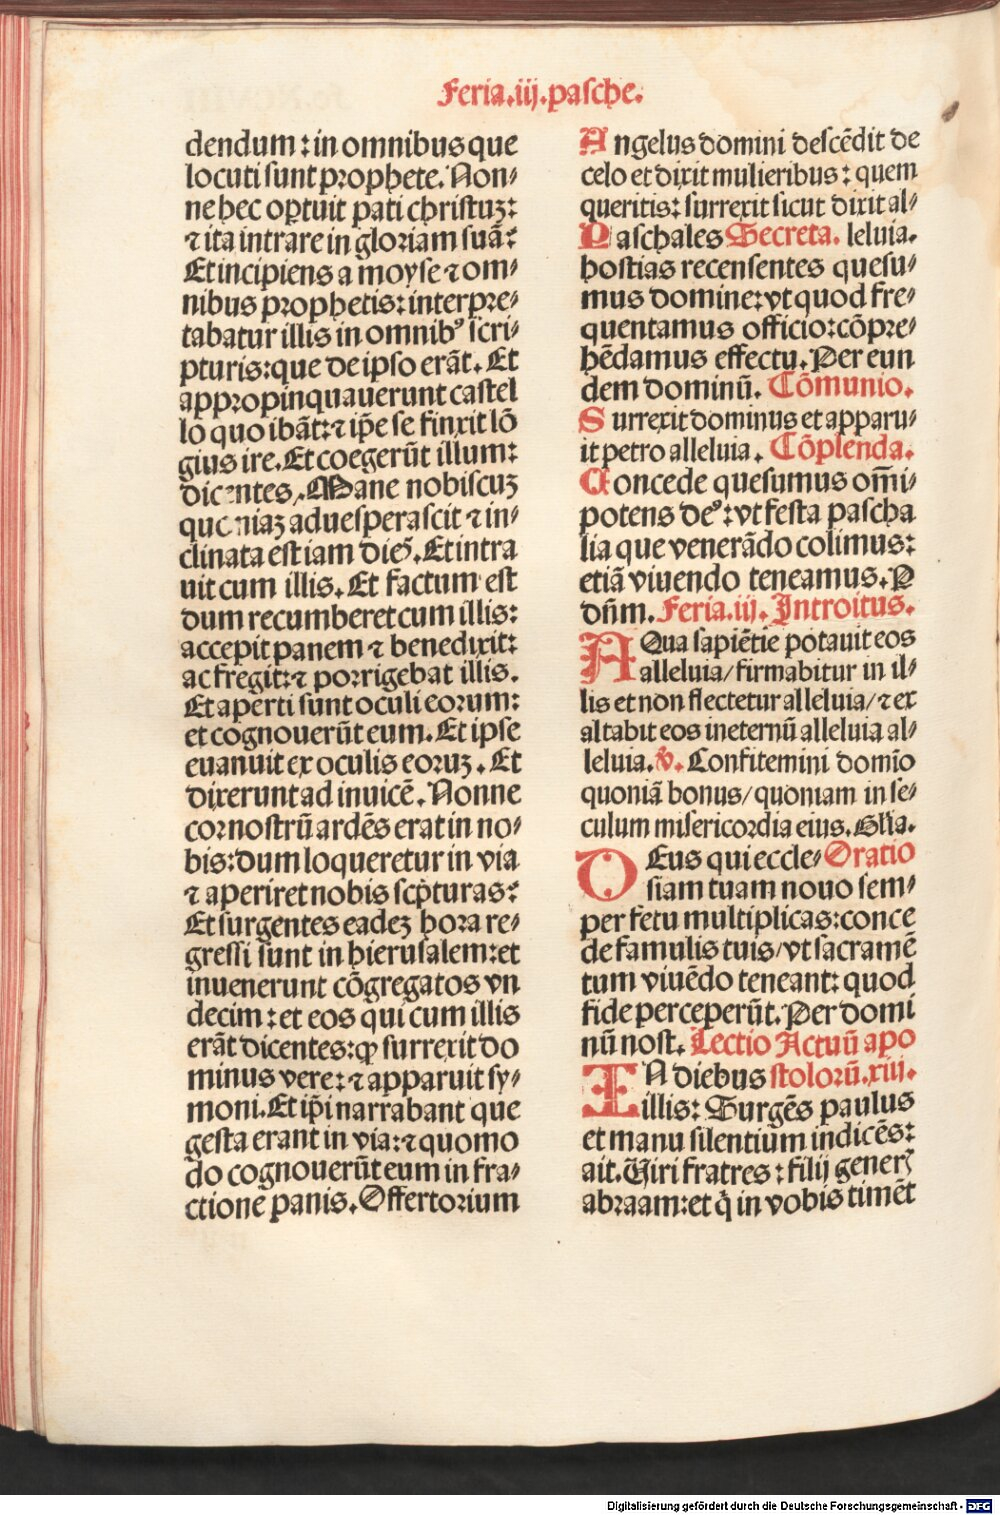 Feria.iij.pasche.
dendum: in omnibus que
locuti sunt prophete. Non-
ne hec oꝑtuit pati christuꝫ:
⁊ ita intrare in gloriam suā:
Et incipiens a moyse ⁊ om-
nibus prophetis: interpre-
tabatur illis in omnibꝰ scri-
pturis: que de ipso erāt. Et
appropinquauerunt castel
lo quo ibāt: ⁊ ip̄e se finxit lō
gius ire. Et coegerūt illum:
dicentes. Mane nobiscuꝫ
quoniaꝫ aduesperascit ⁊ in-
clinata est iam dies. Et intra
uit cum illis. Et factum est
dum recumberet cum illis:
accepit panem ⁊ benedixit:
ac fregit: ⁊ porrigebat illis.
Et aperti sunt oculi eorum:
et cognouerūt eum. Et ipse
euanuit ex oculis eoruꝫ. Et
dixerunt ad inuicē. Nonne
cor nostrū ardēs erat in no-
bis: dum loqueretur in via
⁊ aperiret nobis scp̄turas:
Et surgentes eadeꝫ hora re-
gressi sunt in hierusalem: et
inuenerunt cōgregatos vn
decim: et eos qui cum illis
erāt dicentes: ꝙ surrexit do
minus vere: ⁊ apparuit sy-
moni. Et ip̄i narrabant que
gesta erant in via: ⁊ quomo
do cognouerūt eum in fra-
ctione panis. Offertorium
Angelus domini descēdit de
celo et dixit mulieribus: quem
queritis: surrexit sicut dixit al-
Paschales Secreta. leluia.
hostias recensentes quesu-
mus domine: vt quod fre-
quentamus officio: cōpre-
hēdamus effectu. Per eun
dem dominū. Cōmunio.
Surrexit dominus et apparu-
it petro alleluia. Cōplenda.
Concede quesumus om̄i-
potens deꝰ: vt festa pascha
lia que venerādo colimus:
etiā viuendo teneamus. P
dn̄m. Feria.iij. Introitus.
AQua sapiētie potauit eos
alleluia/ firmabitur in il-
lis et non flectetur alleluia/ ⁊ ex
altabit eos in eternū alleluia al-
leluia. v̄. Confitemini domīo
quoniā bonus/ quoniam in se-
culum misericordia eius. Gl̄ia.
DEus qui eccle- Oratio
siam tuam nouo sem-
per fetu multiplicas: conce
de famulis tuis/ vt sacramē
tum viuēdo teneant: quod
fide perceperūt. Per domi
nū nost. Lectio Actuū apo
IN diebus stolorū.xiij.
illis: Surgēs paulus
et manu silentium indicēs:
ait. Uiri fratres: filij generꝭ
abraam: et q̇ in vobis timēt
Digitalisierung gefördert durch die Deutsche Forschungsgemeinschaft - DFG